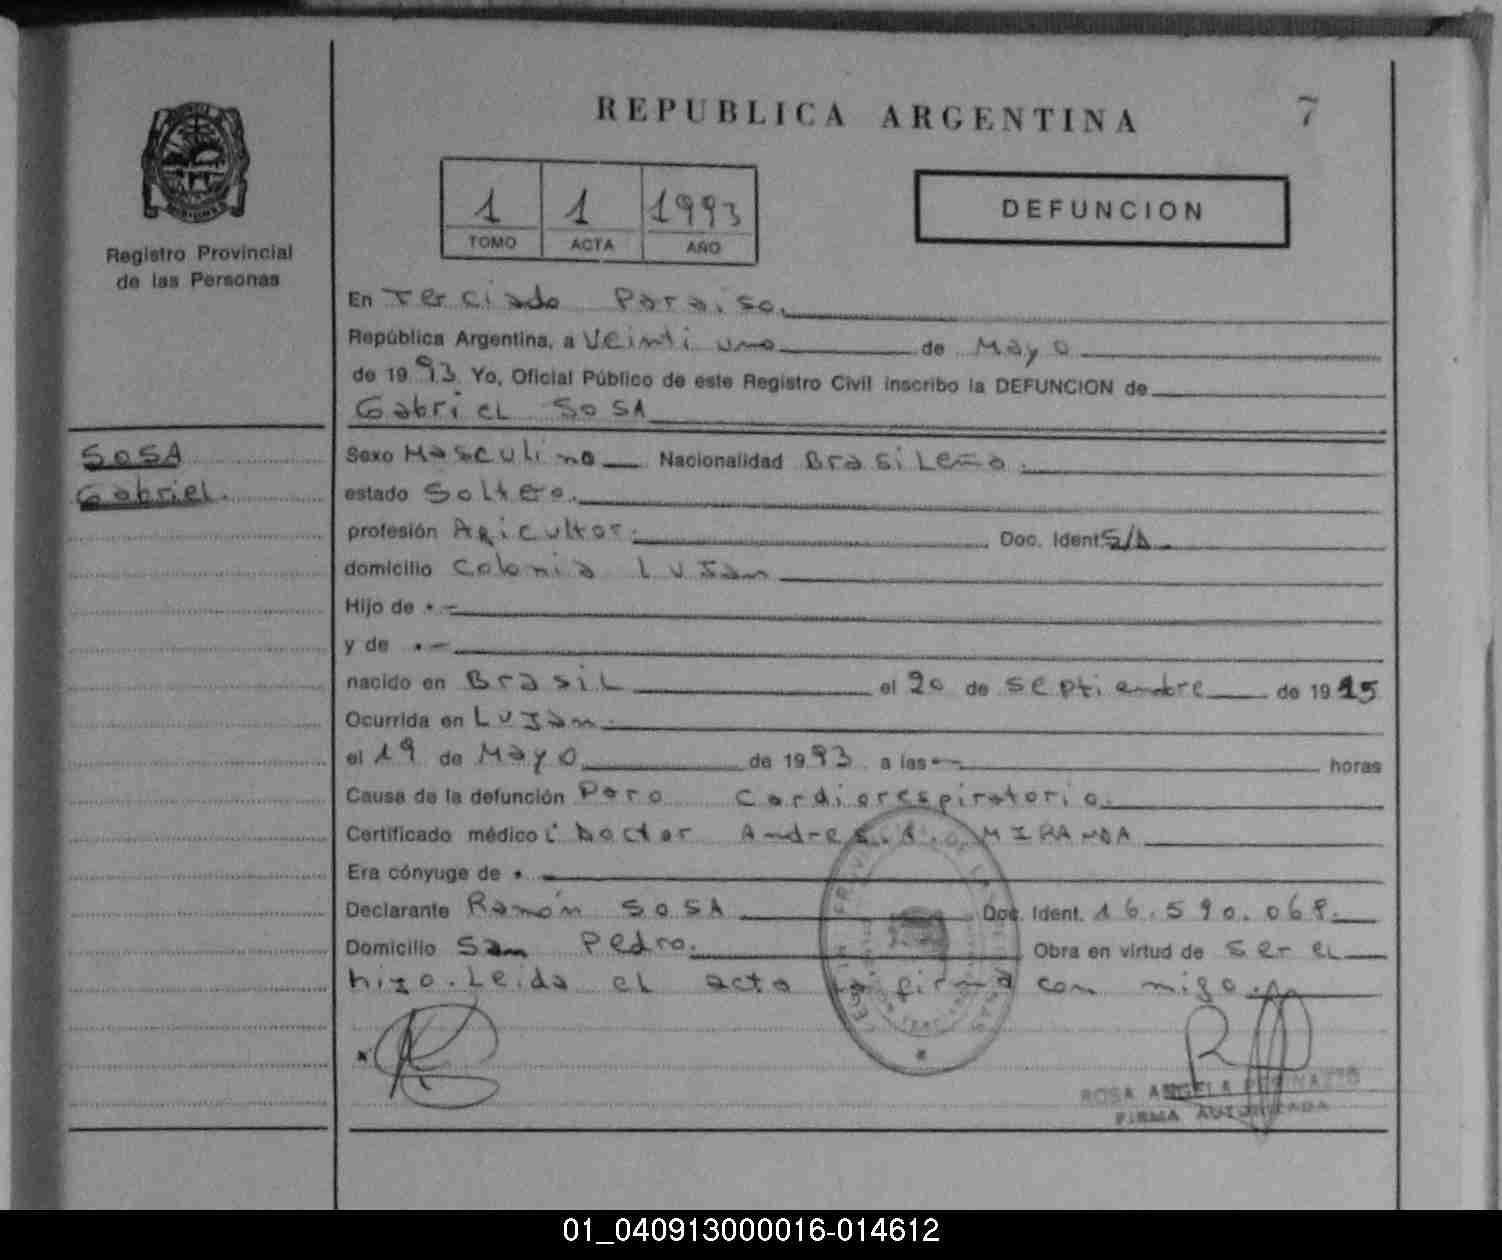 REPUBLICA ARGENTINA
7
Registro Provincial
de las Personas
1 1 1993
TOMO ACTA AÑO
DEFUNCION
En Terciado Paraiso.
República Argentina, a Veinti uno de Mayo
de 1993 Yo, Oficial Público de este Registro Civil inscribo la DEFUNCION de
Gabriel SOSA
SOSA
Gabriel.
Sexo Masculino Nacionalidad Brasileña.
estado Soltero.
profesión Agricultor. Doc. Ident. S/D.
domicilio Colonia Lujan
Hijo de
y de
nacido en Brasil el 20 de septiembre de 1915
Ocurrida en Lujan.
el 19 de Mayo de 1993 a las horas
Causa de la defunción Paro Cardiorespiratorio.
Certificado médico: Doctor Andres MIRANDA
Era cónyuge de
Declarante Ramón SOSA Doc. Ident. 16.590.068.
Domicilio San Pedro. Obra en virtud de ser el
hijo. Leida el acta la firma con migo.
ROSA ANGELA
FIRMA AUTORIZADA
01_040913000016-014612